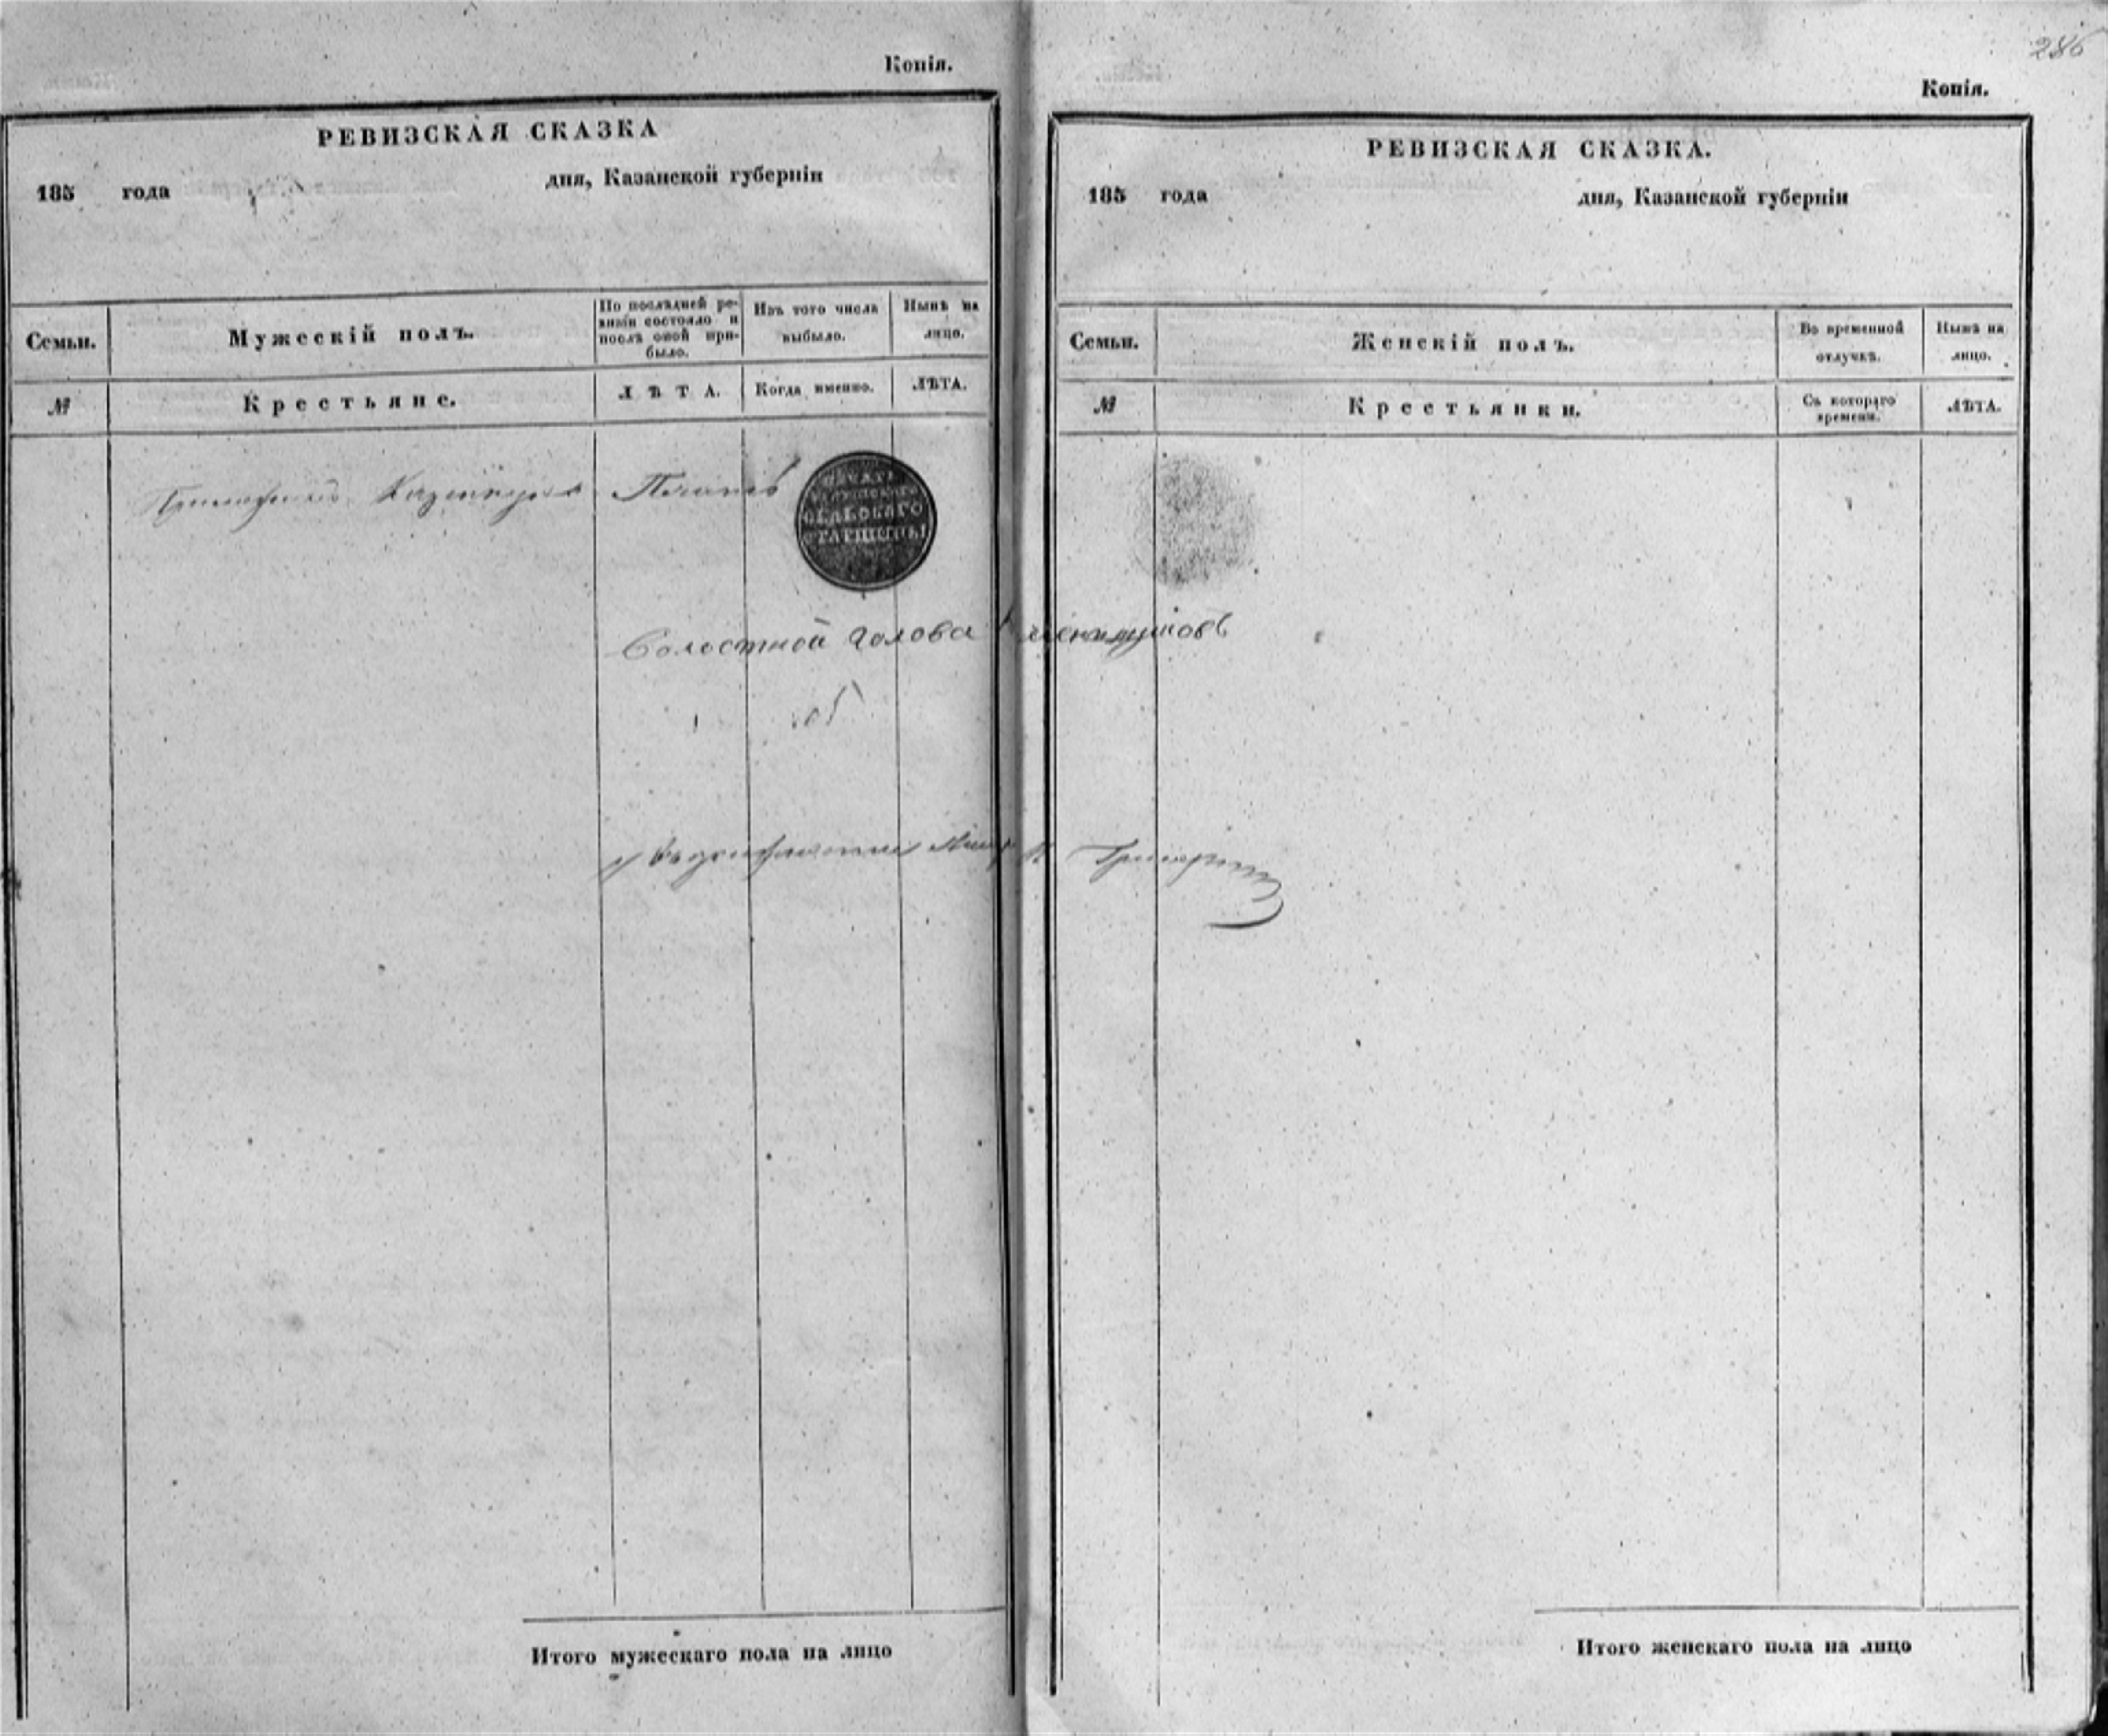 Копія.
РЕВИЗСКАЯ СКАЗКА
185 года дня, Казанской губерніи
Семьи. Мужескій полъ. По послѣдней ревизіи состояло и послѣ оной прибыло. Изъ того числа выбыло. Нынѣ на лицо.
№ Крестьяне. ЛѢТА. Когда именно. ЛѢТА.
Печать
ПЕЧАТЬ
СЕЛЬСКАГО
СТАРШИНЫ
Волостной Голова
Итого мужескаго пола на лицо
286
Копія.
РЕВИЗСКАЯ СКАЗКА.
185 года дня, Казанской губерніи
Семьи. Женскій полъ. Во временной отлучкѣ. Нынѣ на лицо.
№ Крестьянки. Съ котораго времени. ЛѢТА.
Итого женскаго пола на лицо